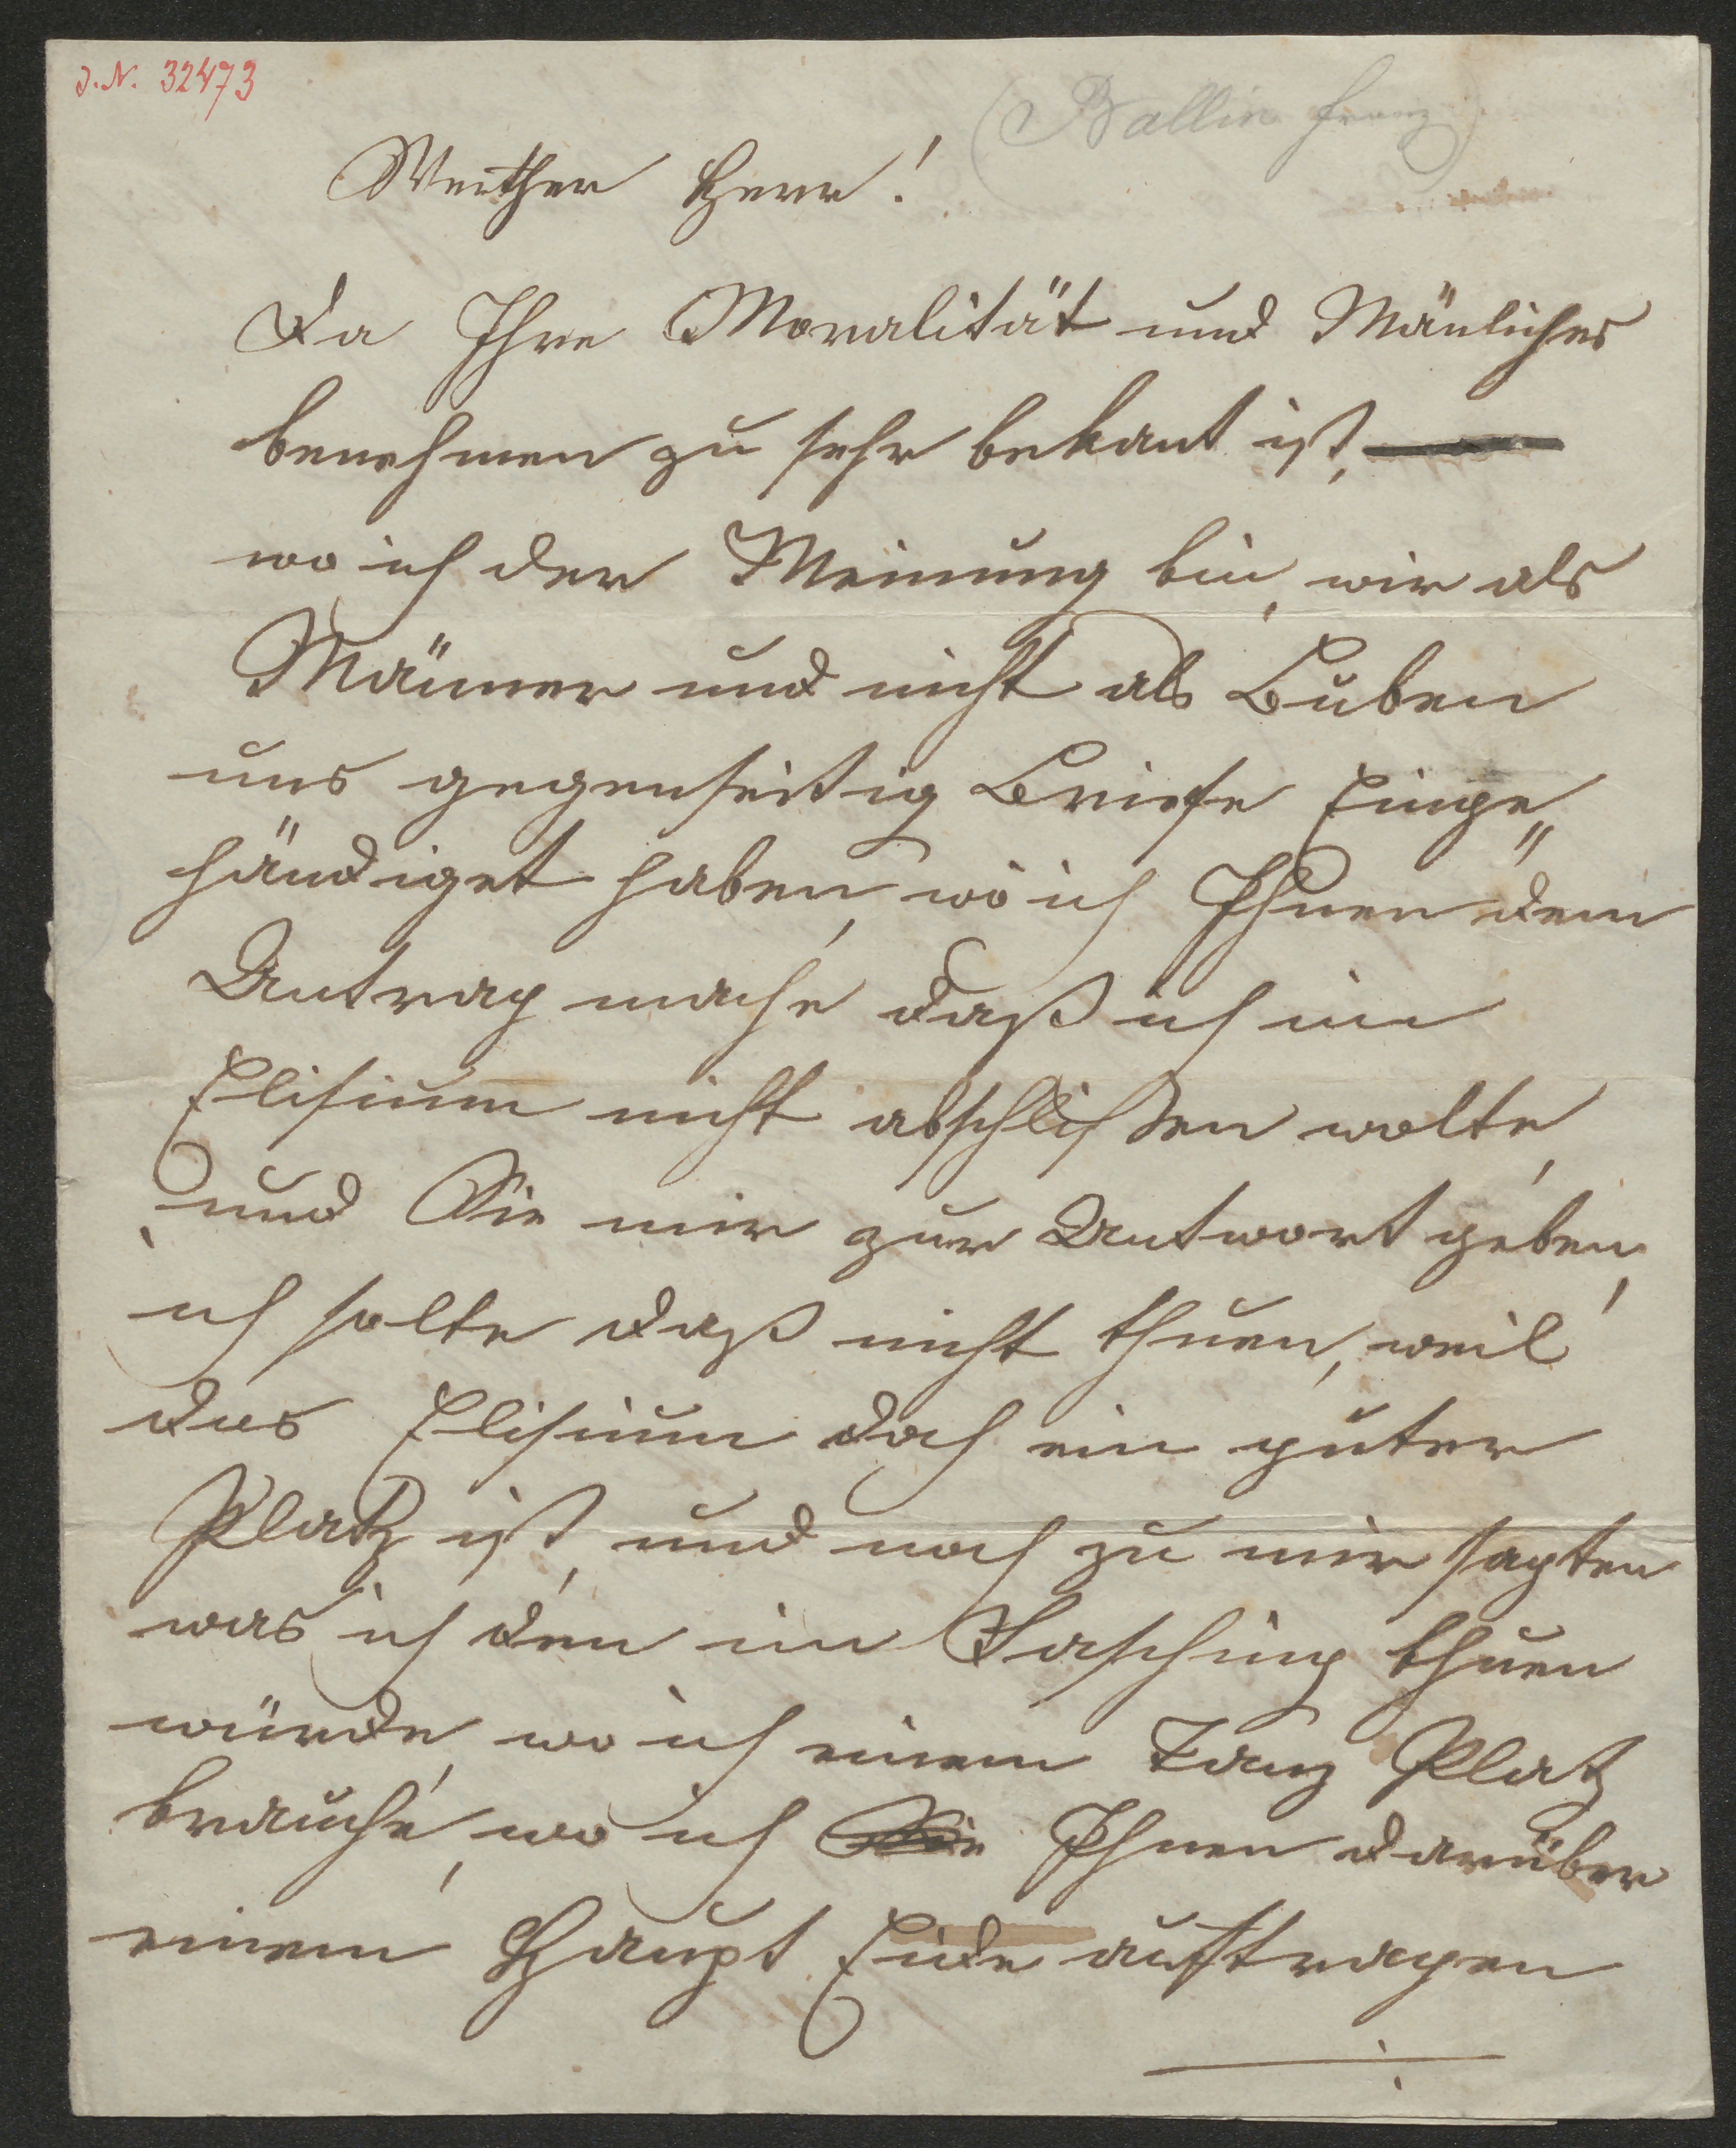 J.N. 32473
(Ballin Franz)
Werther Herr!
Da Ihre Moralität und Mänliches
benehmen zu sehr bekant ist,
wo ich der Meinung bin, wir als
Männer und nicht als Buben
uns gegenseitig Briefe Einge„
händiget haben, wo ich Ihnen dem
Antrag mache daß ich im
Elisium nicht abschlißen wolte,
und Sie mir zur Antwort geben,
ich solte daß nicht thuen, weil
das Elisium doch ein guter
Platz ist, und noch zu mir sagten
was ich den im Fasching thuen
würde, wo ich einem Tanz Platz
brauche, wo ich Sie Ihnen darüber
einem Haupt Eide auftragen